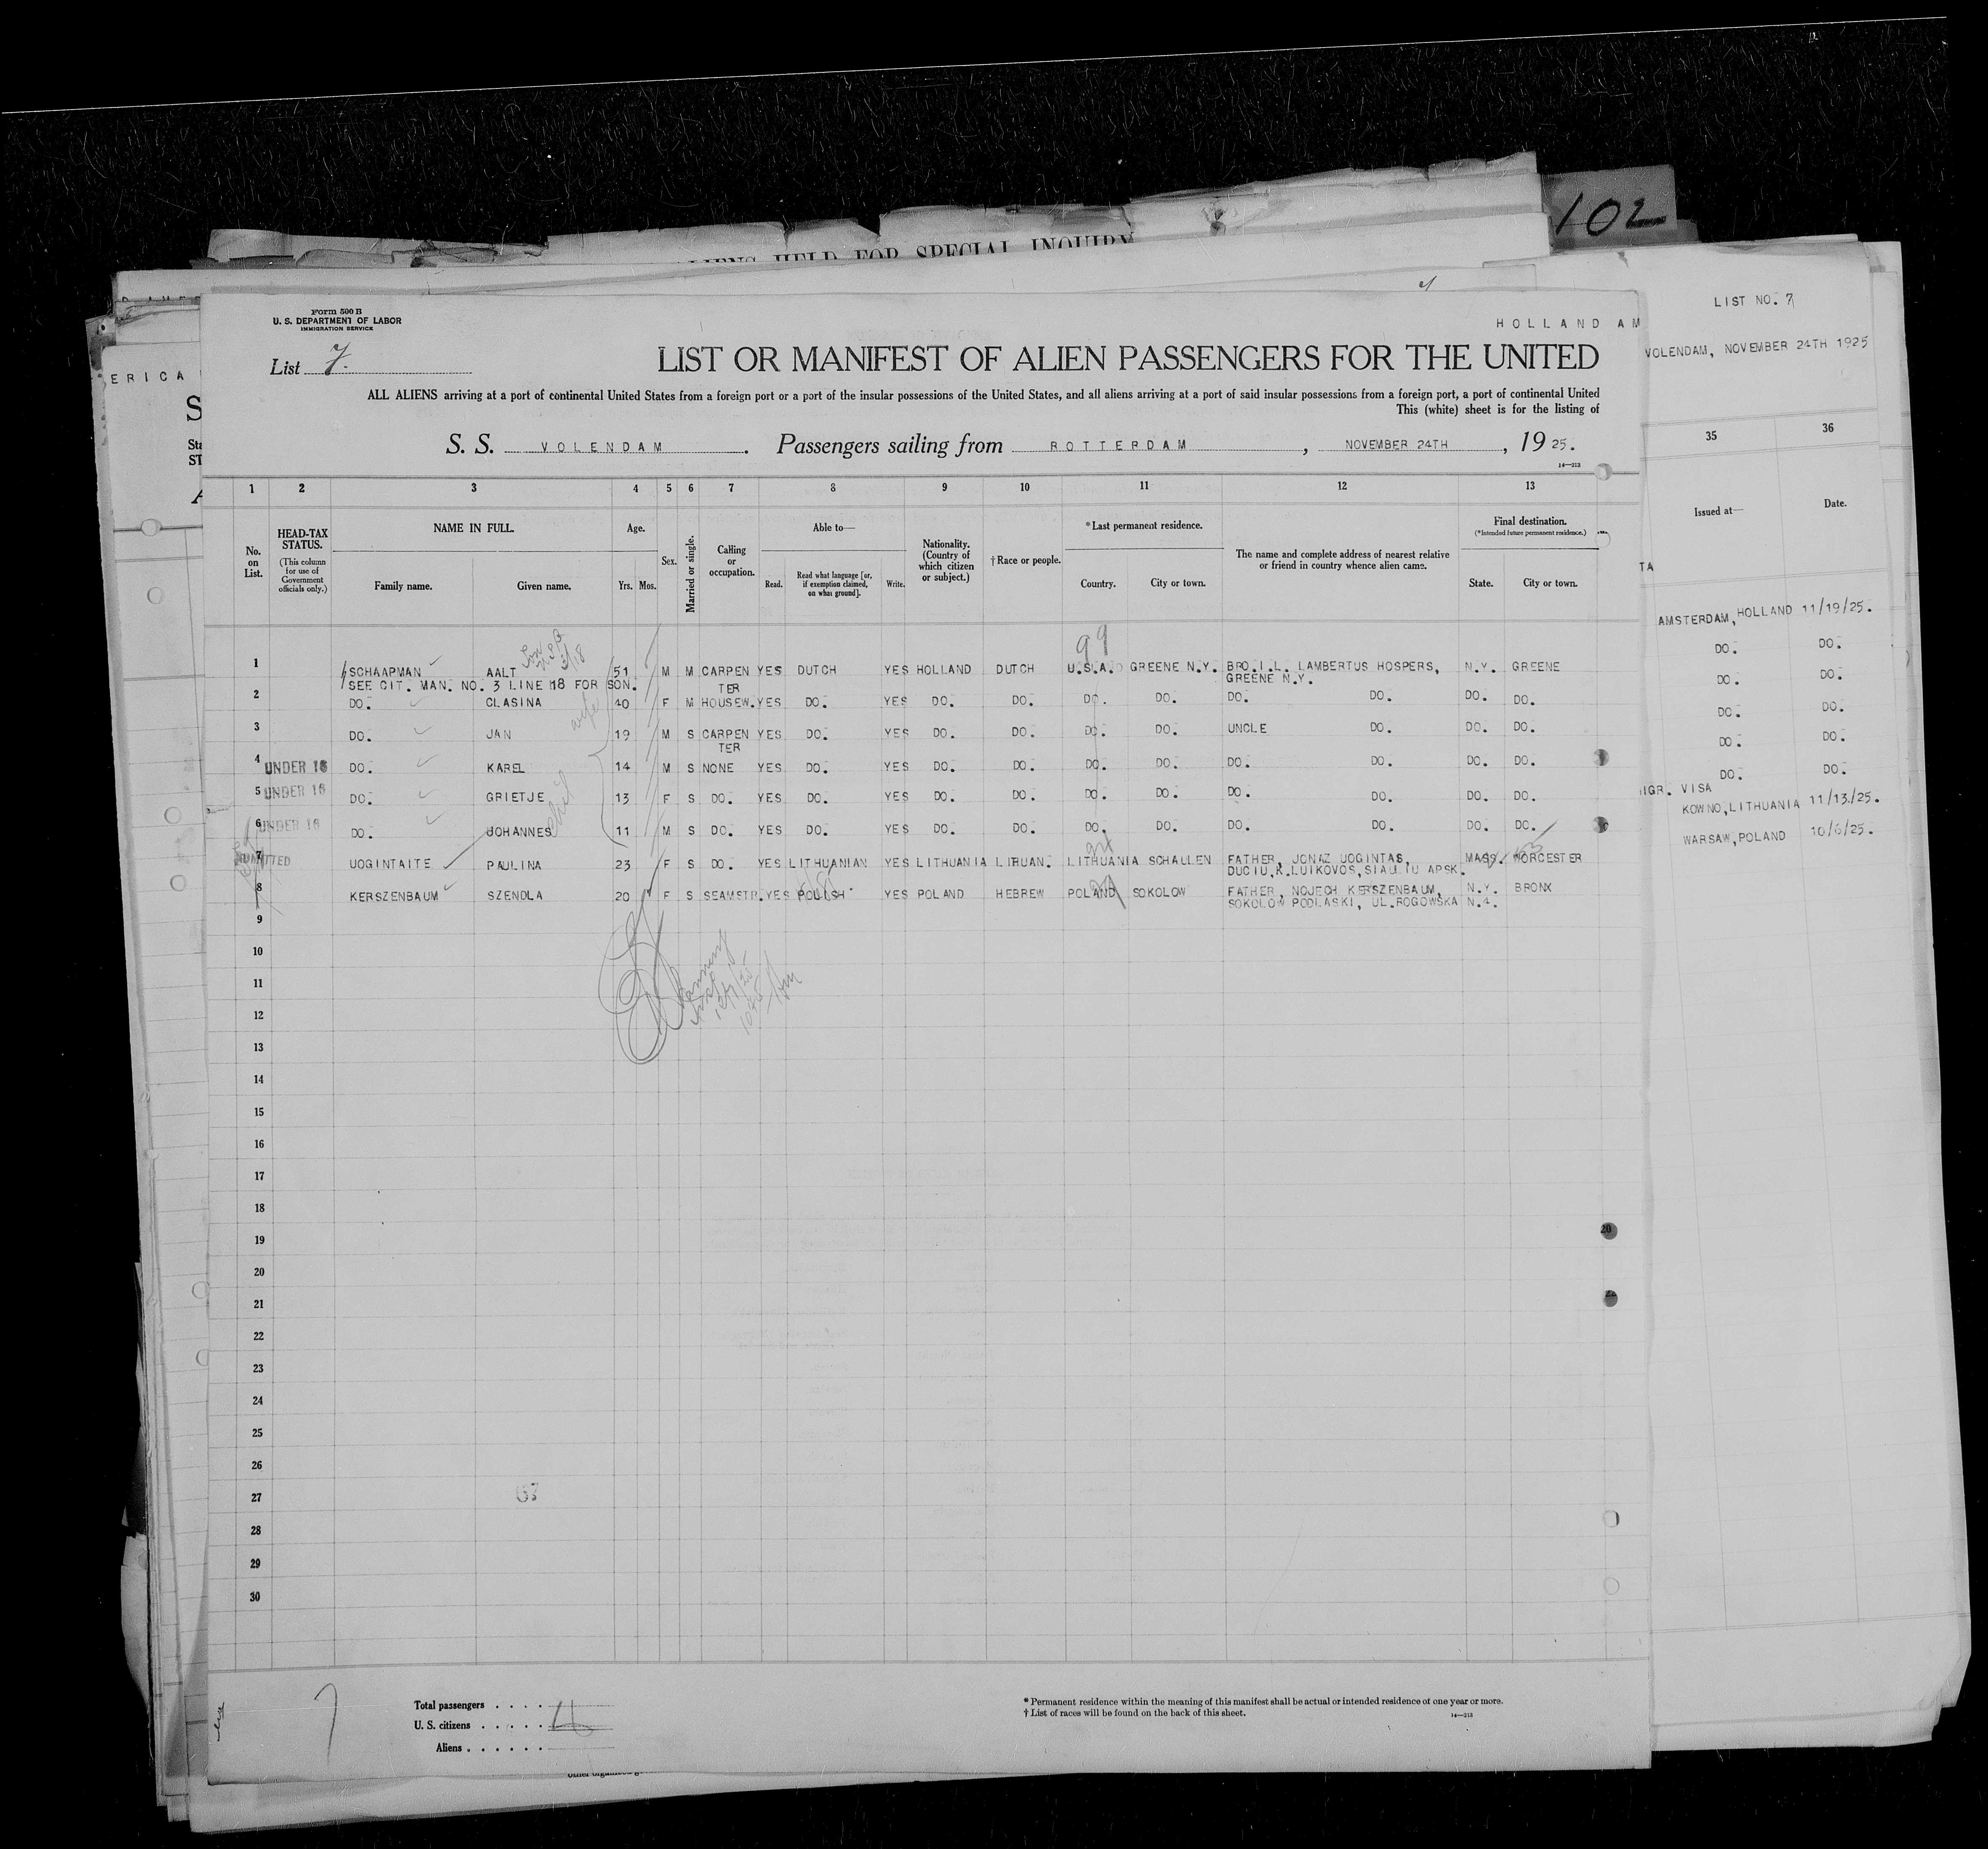 102
ALIENS HELD FOR SPECIAL INQUIRY
LIST NO. 7
VOLENDAM, NOVEMBER 24TH 1925
ERICA
Form 500 B
U. S. DEPARTMENT OF LABOR
IMMIGRATION SERVICE
HOLLAND AM
List 7.
LIST OR MANIFEST OF ALIEN PASSENGERS FOR THE UNITED
ALL ALIENS arriving at a port of continental United States from a foreign port or a port of the insular possessions of the United States, and all aliens arriving at a port of said insular possessions from a foreign port, a port of continental United
This (white) sheet is for the listing of
S. S. VOLENDAM. Passengers sailing from ROTTERDAM, NOVEMBER 24TH, 19 25.
14—213
1 2 3 4 5 6 7 8 9 10 11 12 13
35 36
No. on List.
HEAD-TAX STATUS.
(This column for use of Government officials only.)
NAME IN FULL.
Family name. Given name.
Age.
Yrs. Mos.
Sex.
Married or single.
Calling or occupation.
Able to—
Read. Read what language [or, if exemption claimed, on what ground]. Write.
Nationality. (Country of which citizen or subject.)
† Race or people.
* Last permanent residence.
Country. City or town.
The name and complete address of nearest relative or friend in country whence alien came.
Final destination.
(*Intended future permanent residence.)
State. City or town.
Issued at— Date.
99
1 SCHAAPMAN AALT 51 M M CARPEN YES DUTCH YES HOLLAND DUTCH U.S.A. GREENE N.Y. BRO.I.L. LAMBERTUS HOSPERS, N.Y. GREENE
SEE CIT. MAN. NO. 3 LINE 18 FOR SON. TER GREENE N.Y.
2 DO. CLASINA 40 F M HOUSEW. YES DO. YES DO. DO. DO. DO. DO. DO. DO. DO.
wife
3 DO. JAN 19 M S CARPEN YES DO. YES DO. DO. DO. DO. UNCLE DO. DO. DO.
TER
4 UNDER 16 DO. KAREL 14 M S NONE YES DO. YES DO. DO. DO. DO. DO. DO. DO. DO.
5 UNDER 16 DO. GRIETJE 13 F S DO. YES DO. YES DO. DO. DO. DO. DO. DO. DO. DO.
6 UNDER 16 DO. JOHANNES 11 M S DO. YES DO. YES DO. DO. DO. DO. DO. DO. DO. DO.
7 ADMITTED UOGINTAITE PAULINA 23 F S DO. YES LITHUANIAN YES LITHUANIA LITHUAN. LITHUANIA SCHAULEN FATHER, JONAZ UOGINTAS, MASS. WORCESTER
DUCIU,K.LUIKOVOS,SIAULIU APSK.
8 KERSZENBAUM SZENDLA 20 F S SEAMSTR. YES POLISH YES POLAND HEBREW POLAND SOKOLOW FATHER, NOJECH KERSZENBAUM, N.Y. BRONX
SOKOLOW PODLASKI, UL.ROGOWSKA N.4.
AMSTERDAM, HOLLAND 11/19/25.
DO. DO.
DO. DO.
DO. DO.
DO. DO.
DO. DO.
IGR. VISA
KOWNO, LITHUANIA 11/13/25.
WARSAW, POLAND 10/6/25.
9
10
11
12
13
14
15
16
17
18
19
20
21
22
23
24
25
26
27
28
29
30
67
7
Total passengers
U. S. citizens
Aliens
* Permanent residence within the meaning of this manifest shall be actual or intended residence of one year or more.
† List of races will be found on the back of this sheet.
14—213